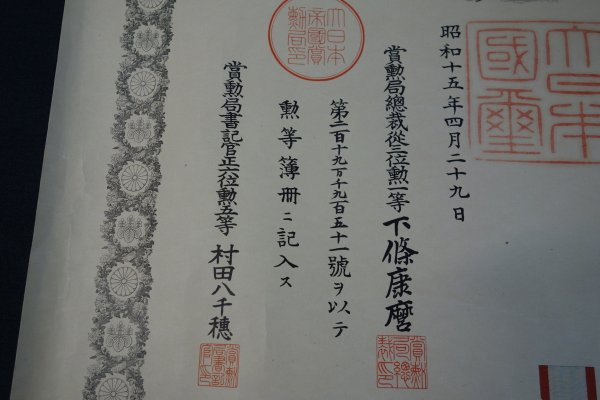 大日本國璽
昭和十五年四月二十九日
賞勲局總裁從三位勲一等下條康麿
大日本帝國賞勲局印
第二百十九万千九百五十一號ヲ以テ
勲等簿冊ニ記入ス
賞勲局書記官正六位勲五等村田八千穂
賞勲局總裁之印